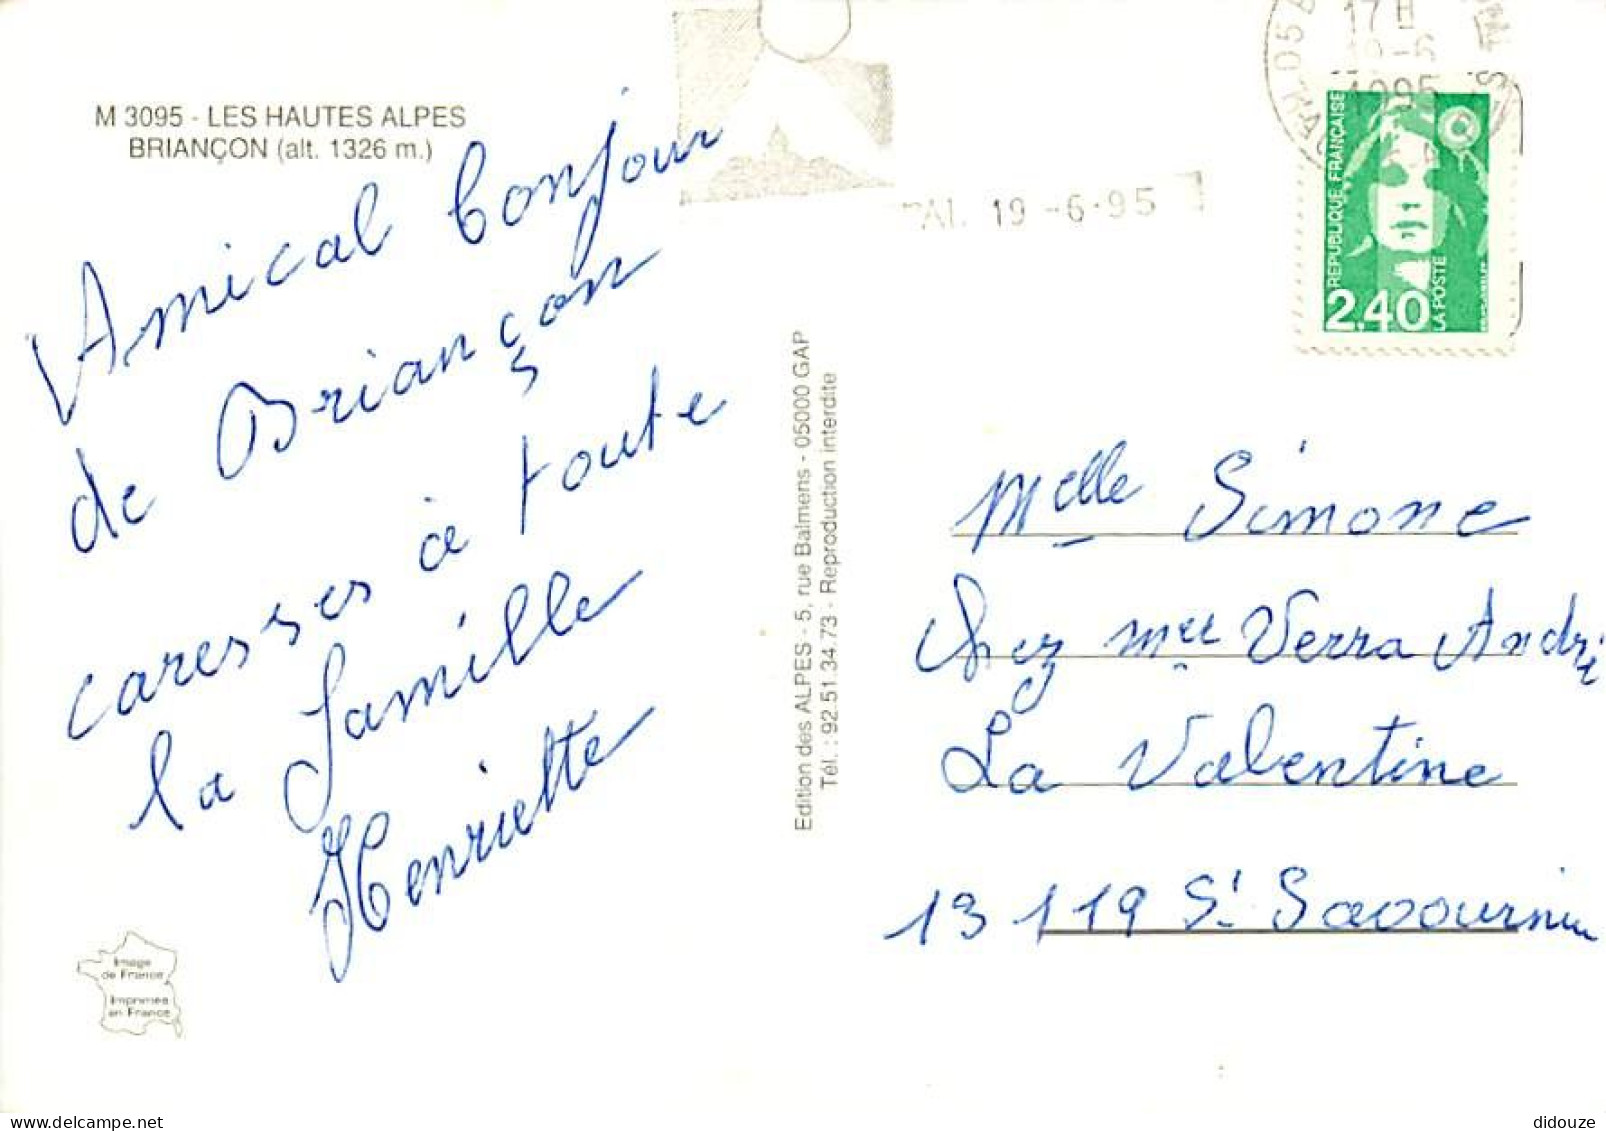 M 3095 - LES HAUTES ALPES
BRIANÇON (alt. 1326 m.)
Amical bonjour
de Briançon
caresses à toute
la famille
Henriette
Image
de France
Imprimée
en France
Edition des ALPES - 5, rue Balmens - 05000 GAP
Tél. : 92.51.34.73 - Reproduction interdite
17H
1995
19-6-95
RÉPUBLIQUE FRANÇAISE
LA POSTE
2,40
Melle Simone
Chez Mme Verra André
La Valentine
13119 St Savournin
didouze